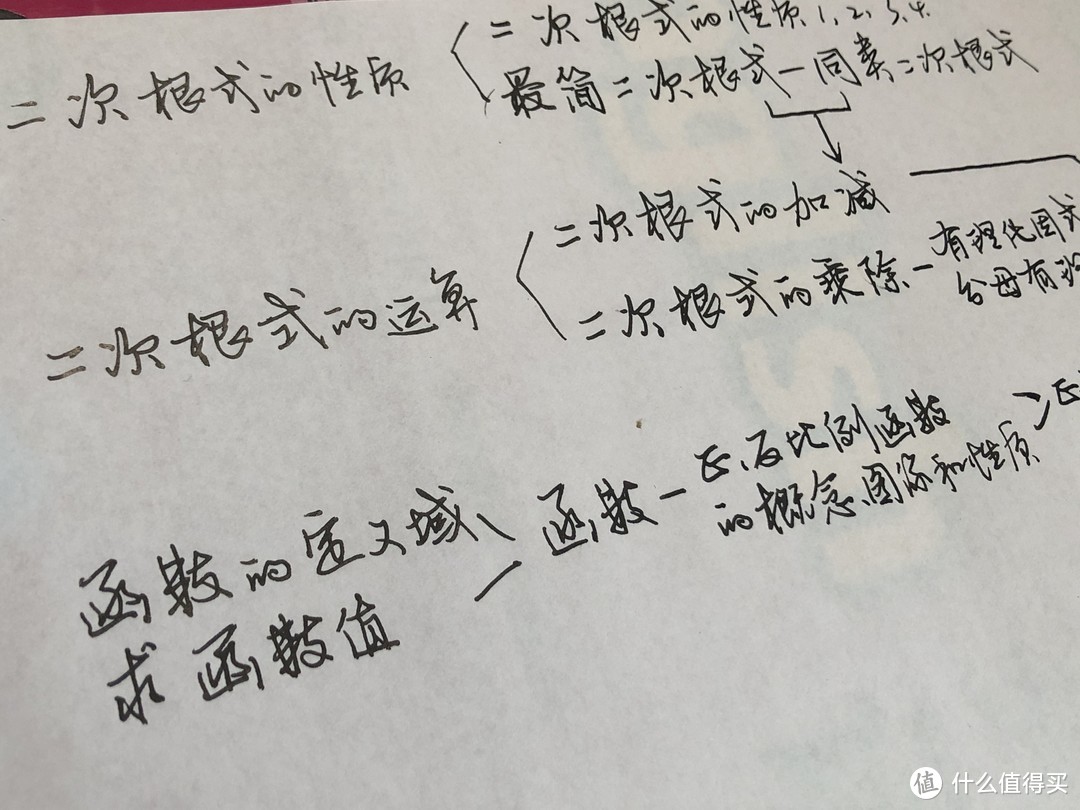 二次根式的性质1.2.3.4.
二次根式的性质
最简二次根式—同类二次根式
二次根式的加减
二次根式的运算
二次根式的乘除—有理化因式
分母有理
正,反比例函数
函数的定义域、
函数—
的概念图像和性质
正
求函数值
值 什么值得买